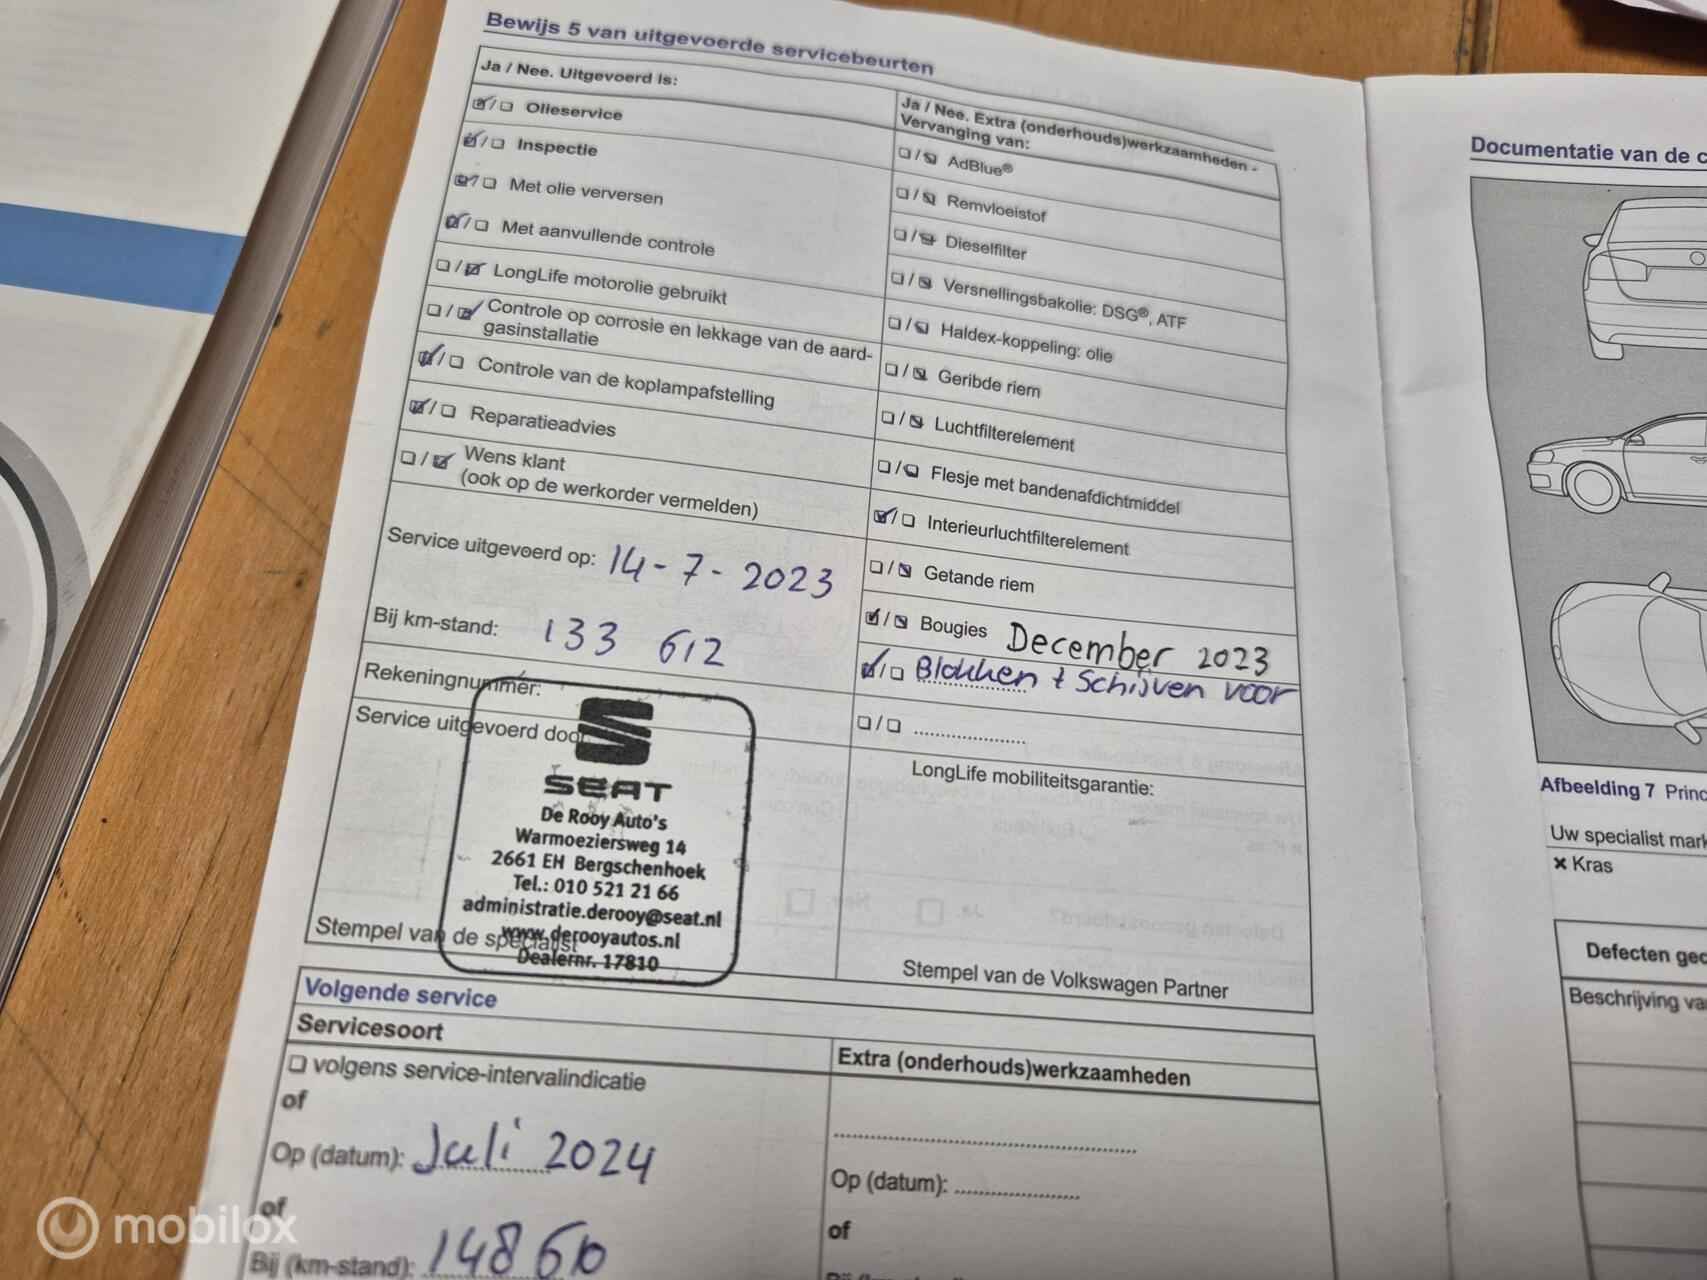 Bewijs 5 van uitgevoerde servicebeurten
Ja / Nee. Uitgevoerd is:
Olieservice
Inspectie
Met olie verversen
Met aanvullende controle
LongLife motorolie gebruikt
Controle op corrosie en lekkage van de aard-
gasinstallatie
Controle van de koplampafstelling
Reparatieadvies
Wens klant
(ook op de werkorder vermelden)
Service uitgevoerd op: 14-7-2023
Bij km-stand: 133 612
Rekeningnummer:
Service uitgevoerd door
SEAT
De Rooy Auto's
Warmoeziersweg 14
2661 EH Bergschenhoek
Tel.: 010 521 21 66
administratie.derooy@seat.nl
www.derooyautos.nl
Dealernr. 17810
Stempel van de specialist
Ja / Nee. Extra (onderhouds)werkzaamheden -
Vervanging van:
AdBlue®
Remvloeistof
Dieselfilter
Versnellingsbakolie: DSG®, ATF
Haldex-koppeling: olie
Geribde riem
Luchtfilterelement
Flesje met bandenafdichtmiddel
Interieurluchtfilterelement
Getande riem
Bougies December 2023
Blokken + Schijven voor
LongLife mobiliteitsgarantie:
Stempel van de Volkswagen Partner
Volgende service
Servicesoort
volgens service-intervalindicatie
of
Op (datum): Juli 2024
of
Bij (km-stand):
Extra (onderhouds)werkzaamheden
Op (datum):
of
Documentatie van de
Afbeelding 7
Uw specialist
Kras
Defecten
Beschrijving
mobilox